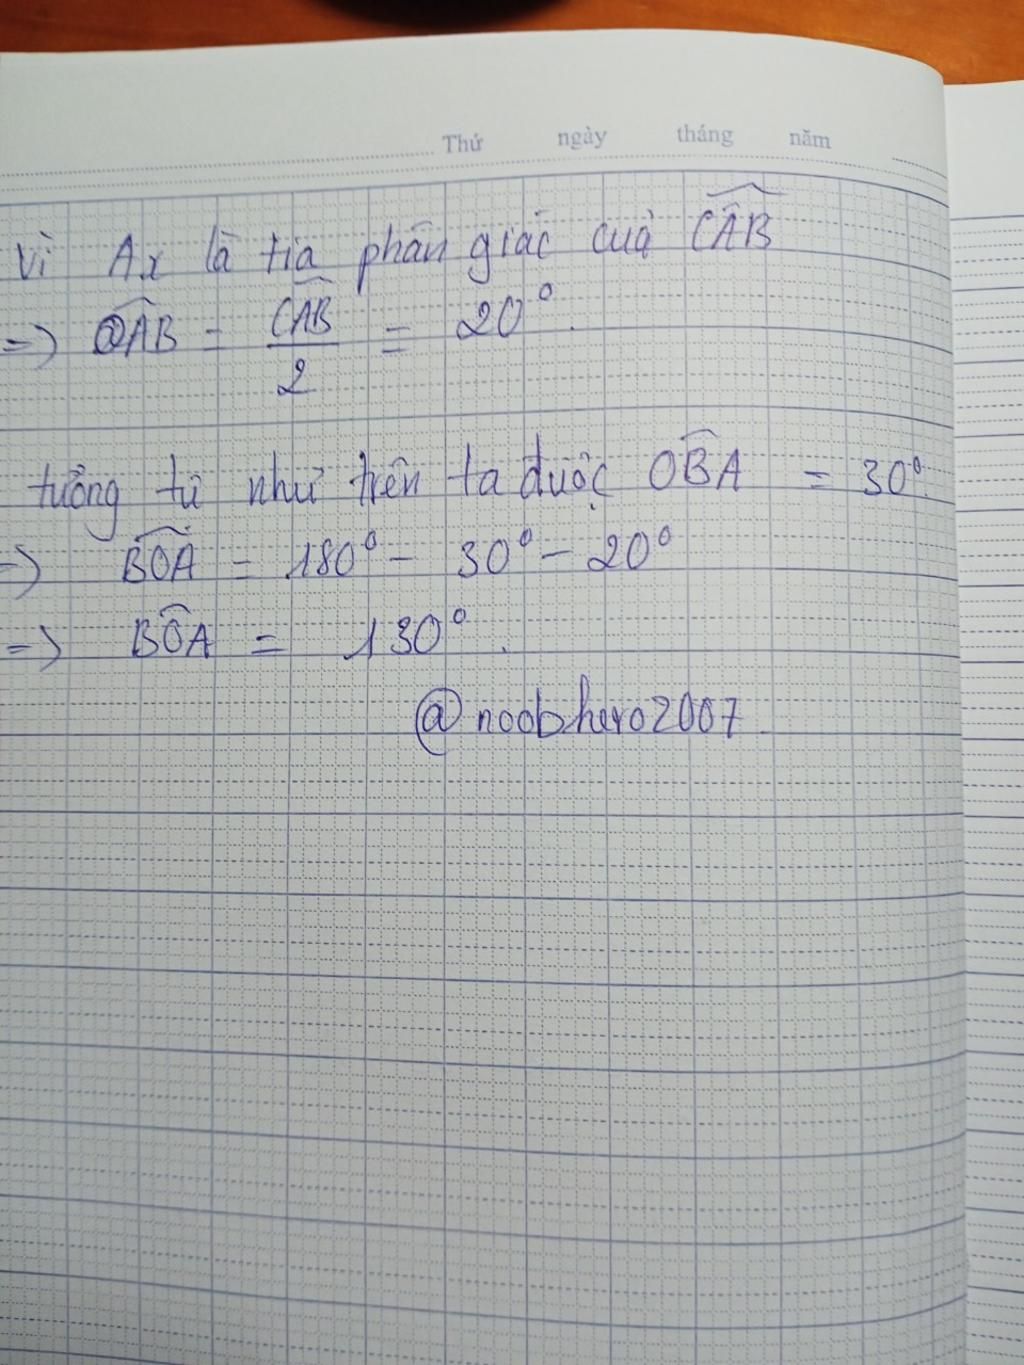 Thứ ngày tháng năm
Vì Ax là tia phân giác của CAB
=> OAB = CAB/2 = 20°.
tương tự như trên ta được OBA = 30°.
=> BOA = 180° - 30° - 20°
=> BOA = 130°.
@noobhero2007.